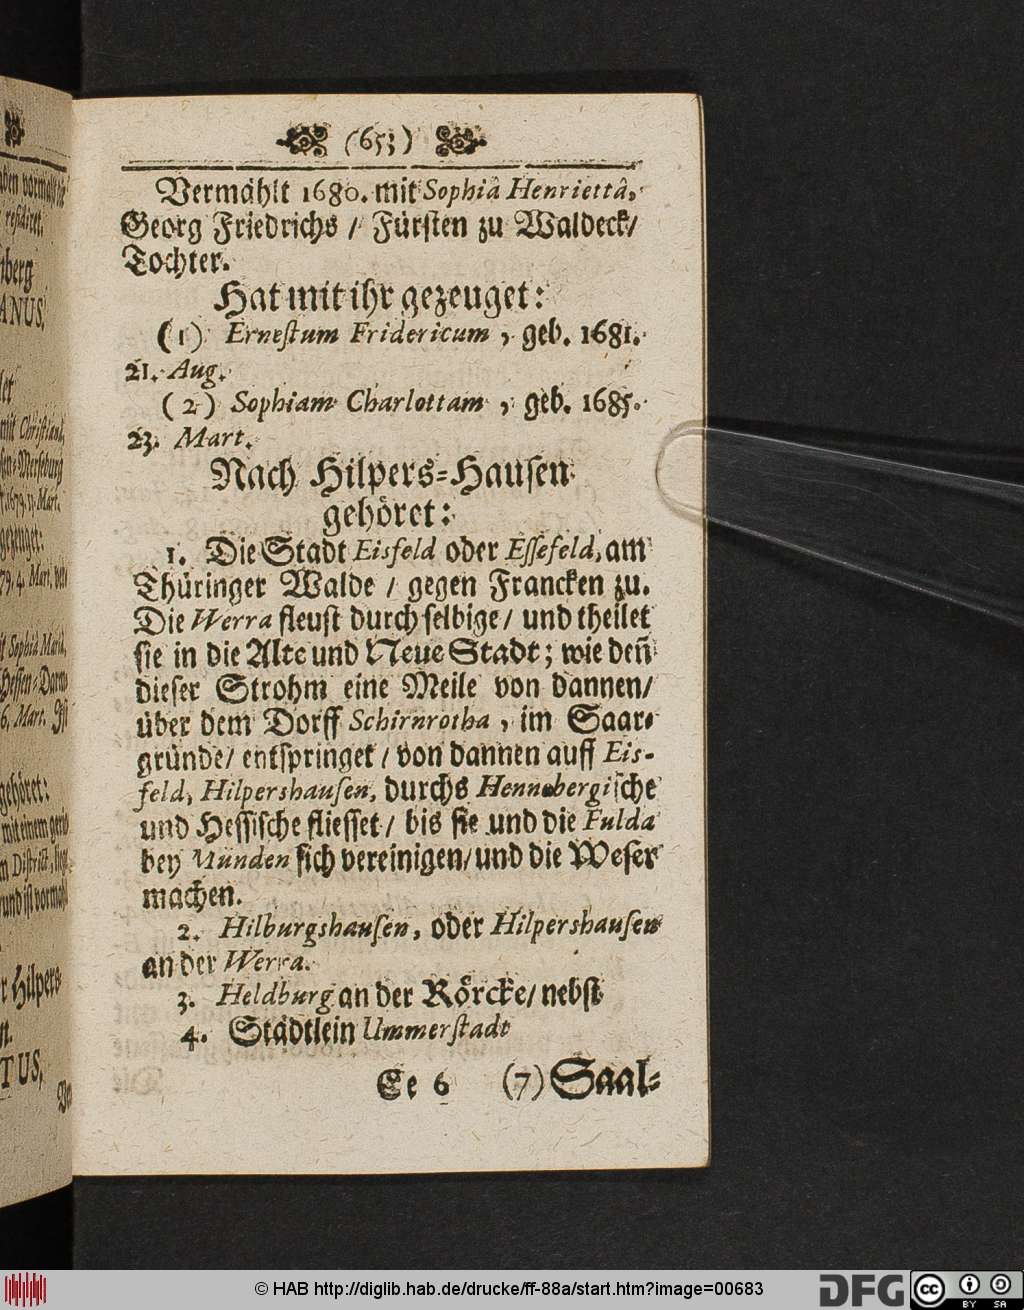 (653)
Vermählt 1680. mit Sophiâ Henriettâ,
Georg Friedrichs / Fürsten zu Waldeck/
Tochter.
Hat mit ihr gezeuget:
(1) Erneſtum Fridericum, geb. 1681.
21. Aug.
(2) Sophiam Charlottam, geb. 1685.
23. Mart.
Nach Hilpers-Hauſen
gehöret:
1. Die Stadt Eisfeld oder Eſſefeld, am
Thüringer Walde / gegen Francken zu.
Die Werra fleuſt durch ſelbige / und theilet
ſie in die Alte und Neue Stadt; wie deñ
dieſer Strohm eine Meile von dannen/
über dem Dorff Schirnrotha, im Saar-
gründe/ entſpringet / von dannen auff Eis-
feld, Hilpershauſen, durchs Hennebergiſche
und Heſſiſche flieſſet / bis ſie und die Fulda
bey Münden ſich vereinigen/ und die Weſer
machen.
2. Hilburgshauſen, oder Hilpershauſen
an der Werra.
3. Heldburg an der Rörcke/ nebſt
4. Städtlein Ummerſtadt
Ee 6 (7) Saal-
© HAB http://diglib.hab.de/drucke/ff-88a/start.htm?image=00683
DFG
cc BY SA